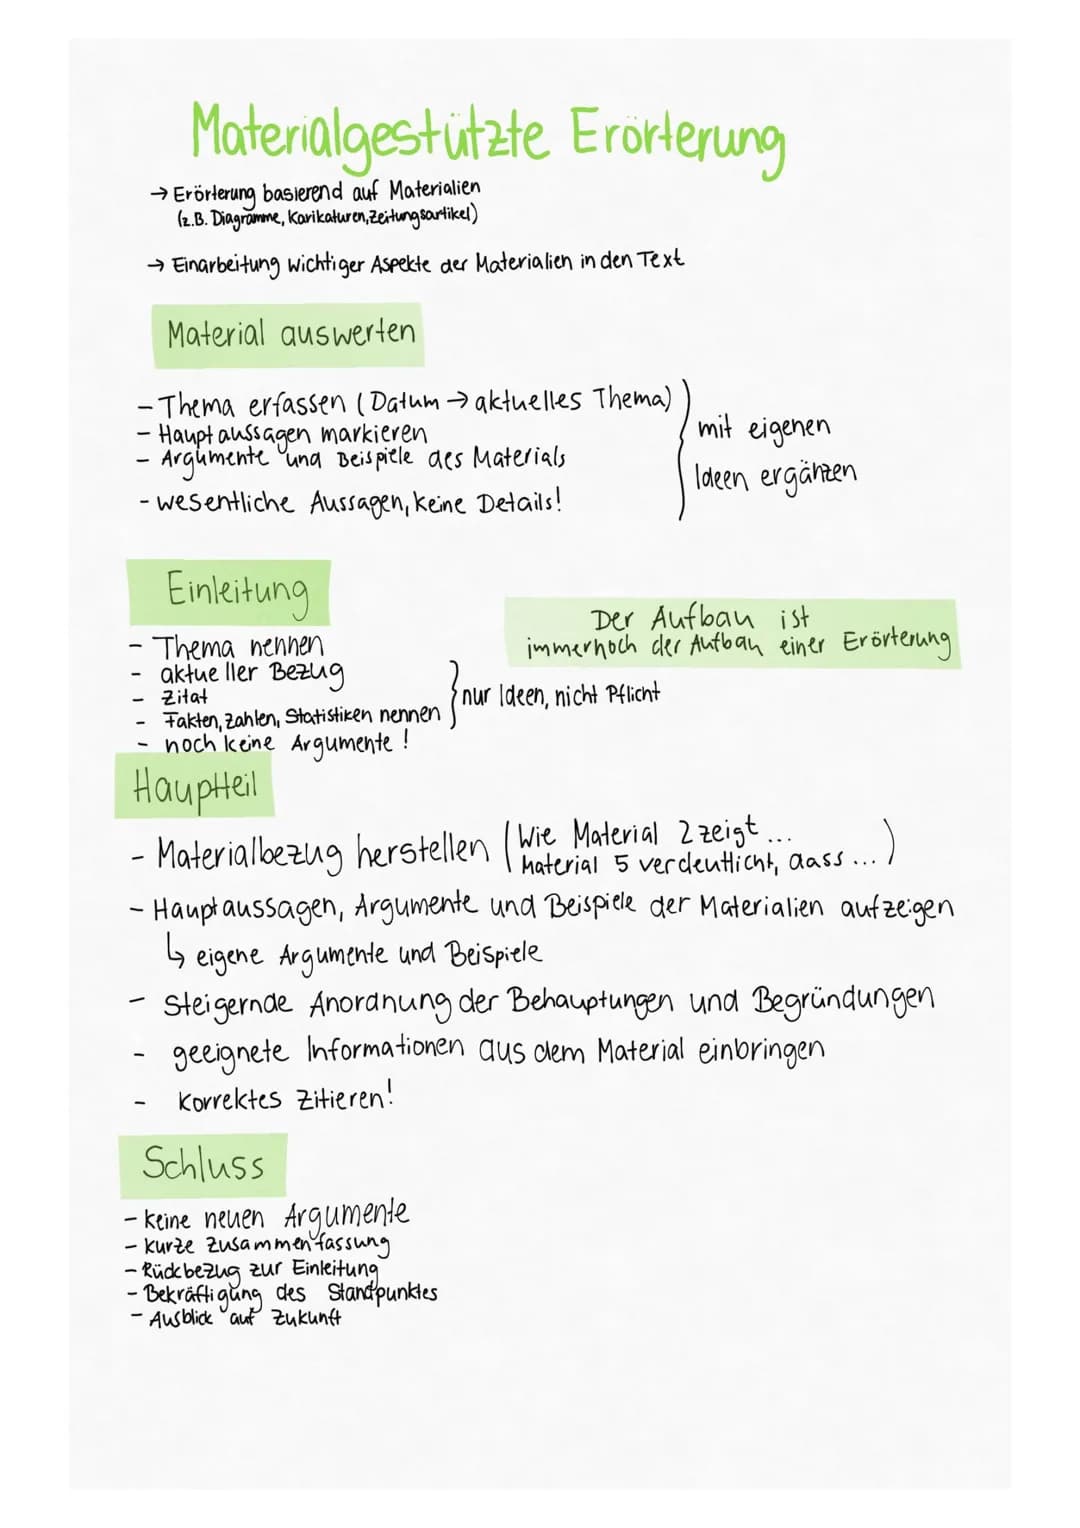 Materialgestützte Erörterung
→ Erörterung basierend auf Materialien
(z.B. Diagramme, Karikaturen, Zeitungsartikel)
→ Einarbeitung wichtiger Aspekte der Materialien in den Text
Material auswerten
- Thema erfassen (Datum → aktuelles Thema)
- Hauptaussagen markieren
- Argumente und Beispiele des Materials
- wesentliche Aussagen, keine Details!
mit eigenen
Ideen ergänzen
Einleitung
- Thema nennen
- aktueller Bezug
- Zitat
- Fakten, Zahlen, Statistiken nennen
- noch keine Argumente!
nur Ideen, nicht Pflicht
Der Aufbau ist
immernoch der Aufbau einer Erörterung
Hauptteil
- Materialbezug herstellen (Wie Material 2 zeigt...
Material 5 verdeutlicht, dass ...)
- Hauptaussagen, Argumente und Beispiele der Materialien aufzeigen
↳ eigene Argumente und Beispiele
- Steigernde Anordnung der Behauptungen und Begründungen
- geeignete Informationen aus dem Material einbringen
- Korrektes Zitieren!
Schluss
- keine neuen Argumente
- kurze Zusammenfassung
- Rückbezug zur Einleitung
- Bekräftigung des Standpunktes
- Ausblick auf Zukunft